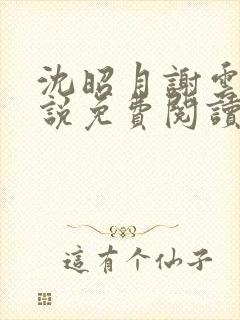 沈昭月謝雲
說免費閱讀
這有个仙子